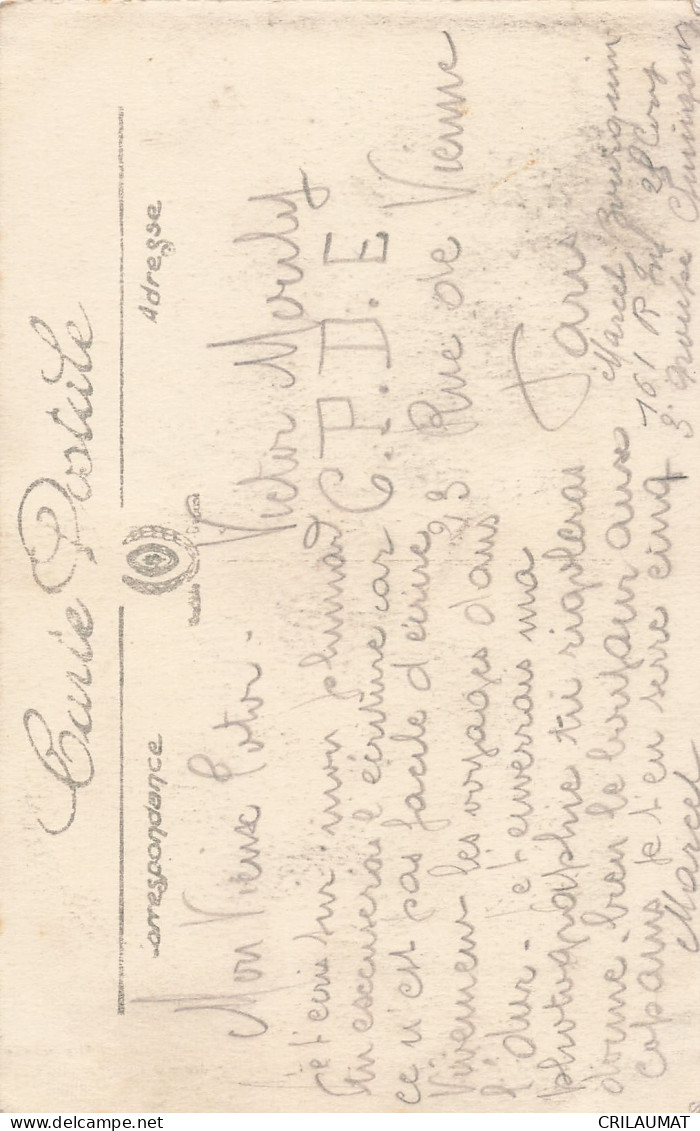 Carte Postale
Correspondance
Adresse
Mon Vieux Totor.
Je t'écris sur mon plumard
tu excuseras l'écriture car
ce n'est pas facile d'écrire.
Vivement les voyages dans
l'dur. Je t'enverrais ma
photographie tu rigoleras
donne bien le bonjour aux
copains je t'en serre cinq
Marcel
Victor Merely
C.P.D.E
23 Rue de Vienne
Paris
Marcel Bourguin
161 R Inf 28 Cie
3 Groupe
CRILAUMAT